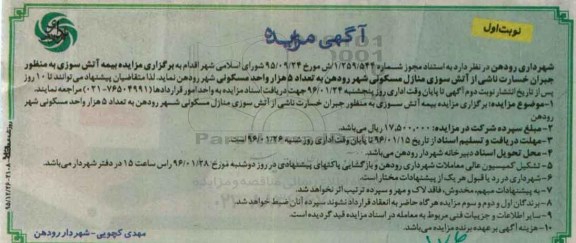 نوبت اول
آگهی مزایده
شهرداری رودهن در نظر دارد به استناد مجوز شماره ۱/۲۵۹/۵۴۴/ش مورخ ۹۵/۰۹/۲۴ شورای اسلامی شهر اقدام به برگزاری مزایده بیمه آتش سوزی به منظور
جبران خسارت ناشی از آتش سوزی منازل مسکونی شهر رودهن به تعداد ۵ هزار واحد مسکونی شهر رودهن نماید. لذا متقاضیان پیشنهاد می توانند تا ۱۰ روز
پس از تاریخ انتشار نوبت دوم آگهی تا پایان وقت اداری روز پنجشنبه ۹۶/۰۱/۲۴ جهت دریافت اسناد مزایده به واحد امور قراردادها (۷۶۵۰۴۹۹۱-۰۲۱) مراجعه نمایند.
۱-موضوع مزایده: برگزاری مزایده بیمه آتش سوزی به منظور جبران خسارت ناشی از آتش سوزی منازل مسکونی شهر رودهن به تعداد ۵ هزار واحد مسکونی شهر
رودهن
۲-مبلغ سپرده شرکت در مزایده: ۱۷,۵۰۰,۰۰۰ ریال می باشد.
۳-مهلت دریافت و تسلیم اسناد از تاریخ ۹۶/۰۱/۱۵ تا پایان وقت اداری روز شنبه ۹۶/۰۱/۲۶ است.
۴-محل تحویل اسناد دبیرخانه شهرداری رودهن می باشد.
۵-تشکیل کمیسیون عالی معاملات شهرداری رودهن و بازگشایی پاکتهای پیشنهادی در روز دوشنبه مورخ ۹۶/۰۱/۲۸ راس ساعت ۱۵ در دفتر شهردار می باشد.
۶-شهرداری در رد یا قبول هر یک از پیشنهادات مختار است.
۷-به پیشنهادات مبهم، مخدوش، فاقد لاک و مهر و سپرده ترتیب اثر نخواهد شد.
۸-برندگان اول و دوم و سوم مزایده هرگاه حاضر به انعقاد قرارداد نشوند سپرده آنان ضبط خواهد شد.
۹-سایر اطلاعات و جزییات فنی مربوط به معامله در اسناد مزایده قید گردیده است.
۱۰-هزینه آگهی بر عهده برنده مزایده می باشد.
مهدی کچویی-شهردار رودهن